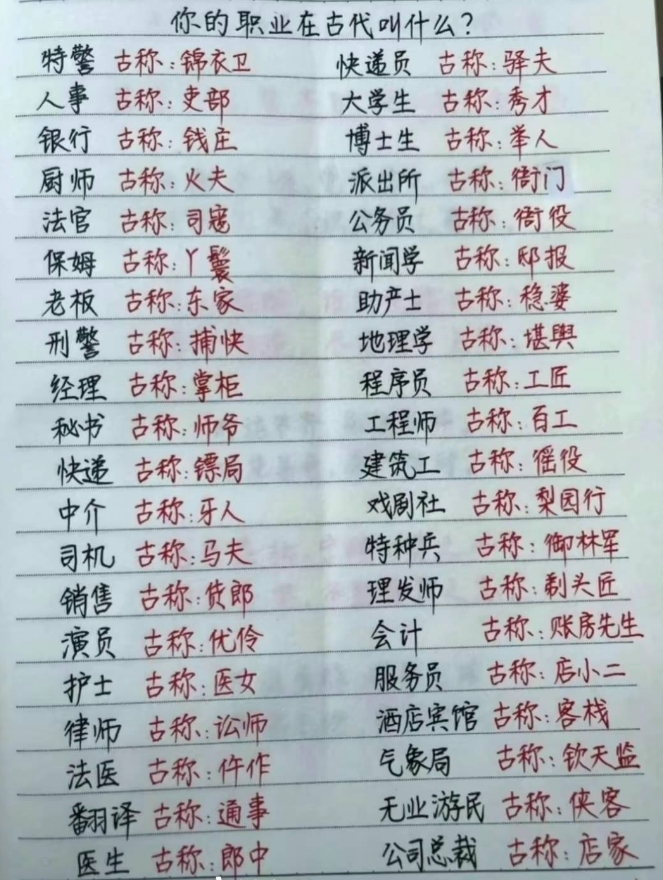 你的职业在古代叫什么?
特警 古称:锦衣卫 快递员 古称:驿夫
人事 古称:吏部 大学生 古称:秀才
银行 古称:钱庄 博士生 古称:举人
厨师 古称:火夫 派出所 古称:衙门
法官 古称:司寇 公务员 古称:衙役
保姆 古称:丫鬟 新闻学 古称:邸报
老板 古称:东家 助产士 古称:稳婆
刑警 古称:捕快 地理学 古称:堪舆
经理 古称:掌柜 程序员 古称:工匠
秘书 古称:师爷 工程师 古称:百工
快递 古称:镖局 建筑工 古称:徭役
中介 古称:牙人 戏剧社 古称:梨园行
司机 古称:马夫 特种兵 古称:御林军
销售 古称:货郎 理发师 古称:剃头匠
演员 古称:优伶 会计 古称:账房先生
护士 古称:医女 服务员 古称:店小二
律师 古称:讼师 酒店宾馆 古称:客栈
法医 古称:仵作 气象局 古称:钦天监
翻译 古称:通事 无业游民 古称:侠客
医生 古称:郎中 公司总裁 古称:店家